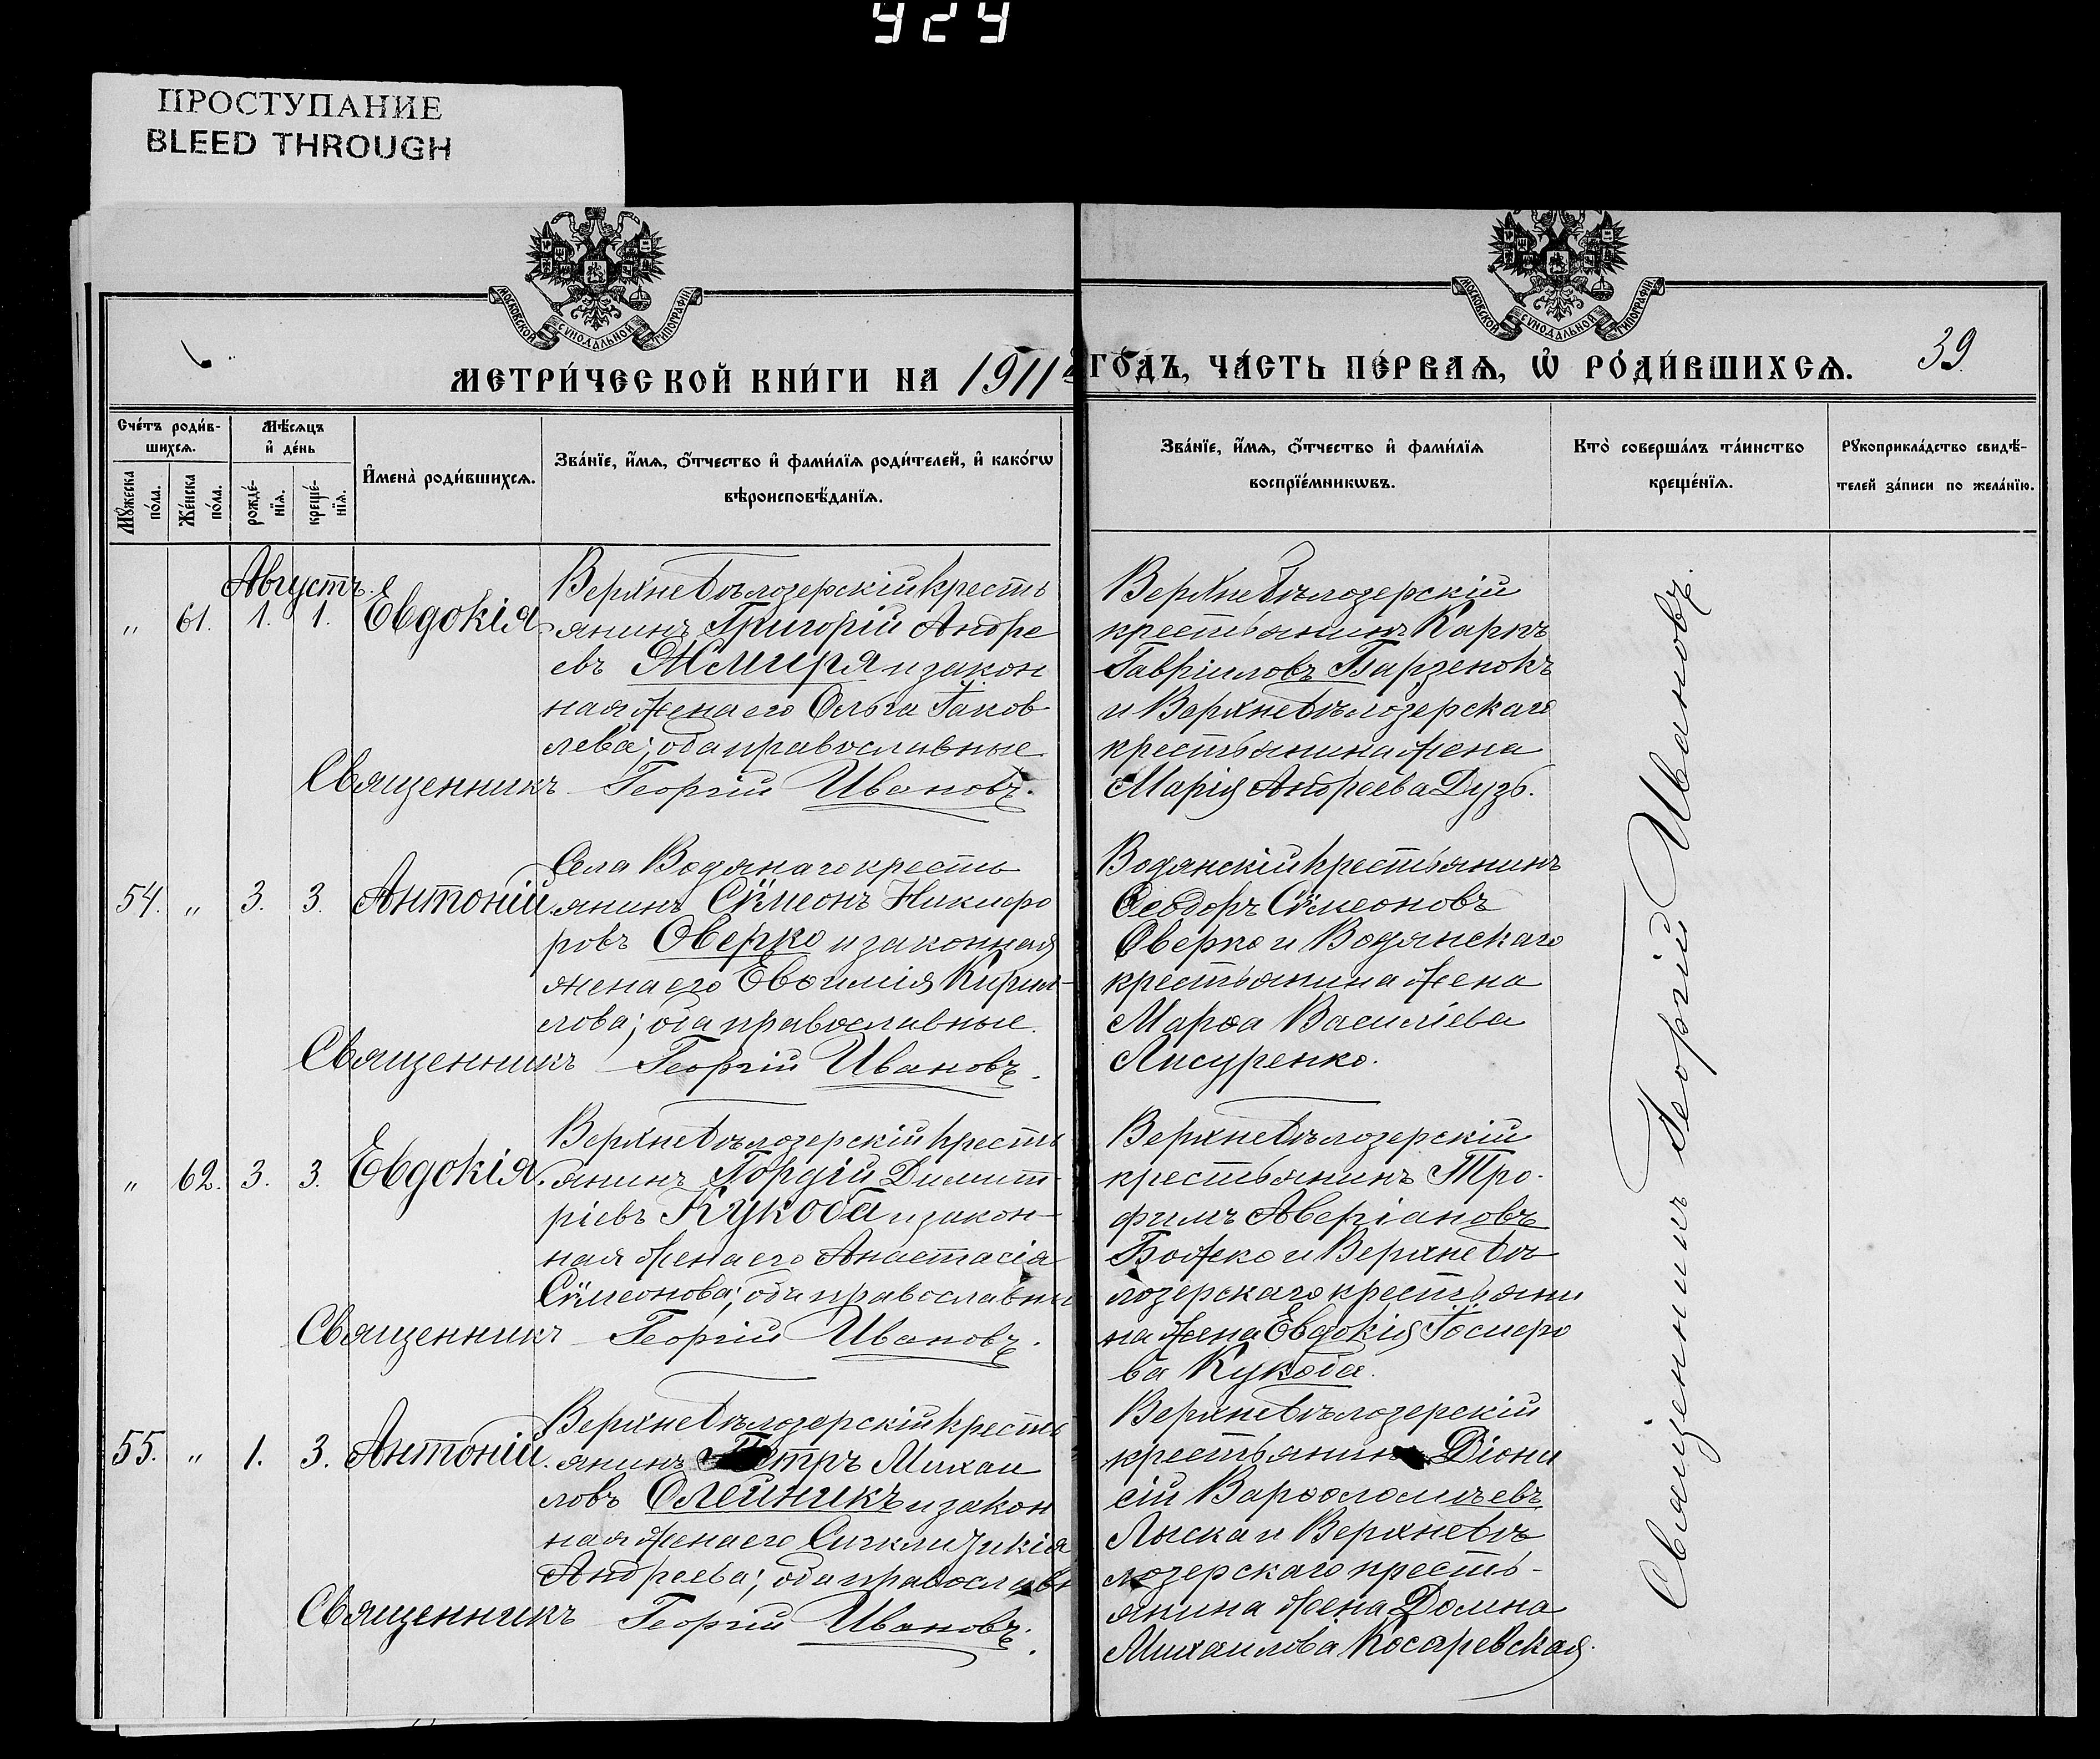 929
ПРОСТУПАНИЕ
BLEED THROUGH
МОСКОВСКОЙ СѴНОДАЛЬНОЙ ТИПОГРАФІИ
МОСКОВСКОЙ СѴНОДАЛЬНОЙ ТИПОГРАФІИ
МЕТРИ́ЧЕСКОЙ КНИ́ГИ НА 1911 ГО́ДЪ, ЧА́СТЬ ПЕ́РВАѦ, Ѡ҆ РОДИ́ВШИХСѦ. 39.
Сче́тъ роди́в-
шихсѧ.
Мꙋжеска
по́ла.
Же́нска
по́ла.
Мѣ́сѧцъ
и҆ де́нь
рожде́-
нїѧ.
креще́-
нїѧ.
И҆мена̀ роди́вшихсѧ.
Зва́нїе, и҆́мѧ, ѻ҆́тчество и҆ фами́лїѧ роди́телей, и҆ како́гѡ
вѣроисповѣ́данїѧ.
Зва́нїе, и҆́мѧ, ѻ҆́тчество и҆ фами́лїѧ
воспрїе́мникѡвъ.
Кто̀ соверша́лъ та́инство
креще́нїѧ.
Рꙋкоприкла́дство свидѣ́-
телей за́писи по жела́нїю.
Августъ.
„ 61. 1. 1. Евдокія.
Верхнебѣлозерскій кресть
янинъ Григорій Андре
евъ Жмиря и закон
ная жена его Ольга Іаков
лева; оба православные
Священникъ Георгій Ивановъ.
Верхнебѣлозерскій
крестьянинъ Карпъ
Гавріиловъ Барзенокъ
и Верхнебѣлозерскаго
крестьянина жена
Марія Андреева Дузь.
54. „ 3. 3. Антоній
Села Водянаго кресть
янинъ Сѵмеонъ Никифо
ровъ Оверко и законная
жена его Евѳимія Кирил-
лова; оба православные.
Священникъ Георгій Ивановъ.
Водянскій крестьянинъ
Ѳеодоръ Сѵмеоновъ
Оверко и Водянскаго
крестьянина жена
Марѳа Василіева
Лисуренко.
„ 62. 3. 3. Евдокія.
Верхнебѣлозерскій кресть
янинъ Гордій Димит-
ріевъ Кукоба и закон-
ная жена его Анастасія
Сѵмеонова; оба православны
Священникъ Георгій Ивановъ.
Верхнебѣлозерскій
крестьянинъ Тро-
фимъ Аверіановъ
Божко и Верхнебѣ
лозерскаго крестьяни
на жена Евдокія Іосифо
ва Кукоба.
55. „ 1. 3. Антоній.
Верхнебѣлозерскій кресть
янинъ Петръ Михаи
ловъ Олейникъ и закон
ная жена его Сигклитикія
Андреева; оба православн
Священникъ Георгій Ивановъ.
Верхнебѣлозерскій
крестьянинъ Діони
сій Варѳоломѣевъ
Лыска и Верхнебѣ
лозерскаго кресть-
янина жена Домна
Михаилова Косаревская.
Священникъ Георгій Ивановъ.